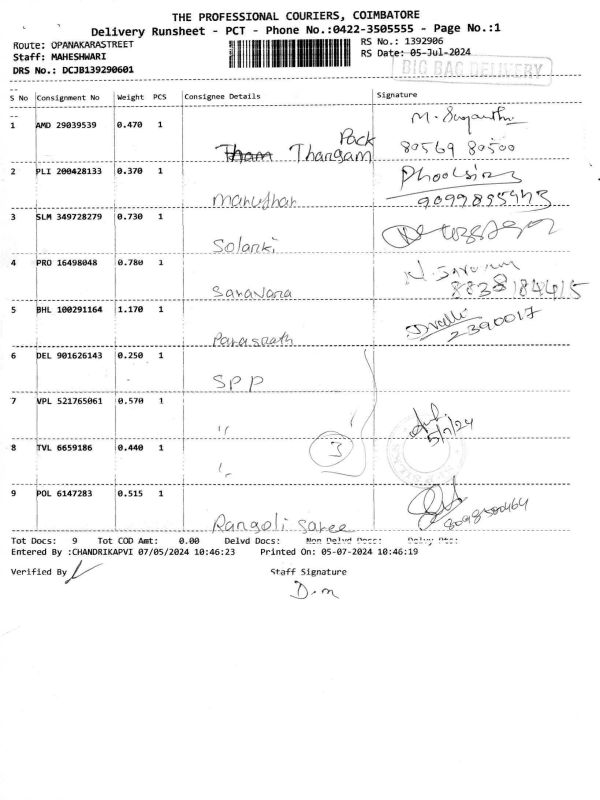 THE PROFESSIONAL COURIERS, COIMBATORE
Delivery Runsheet - PCT - Phone No.:0422-3505555 - Page No.:1
Route: OPANAKARASTREET RS No.: 1392906
Staff: MAHESHWARI RS Date: 05-Jul-2024
DRS No.: DCJB139290601 BIG BAG DELIVERY
S No Consignment No Weight PCS Consignee Details Signature
1 AMD 29039539 0.470 1 Tham Thangam Pack
80569 80500
2 PLI 200428133 0.370 1 Manudhar
9099895973
3 SLM 349728279 0.730 1 Solanki
4 PRO 16498048 0.780 1 Saravana
8838184415
5 BHL 100291164 1.170 1 Parasnath
2390017
6 DEL 901626143 0.250 1 SPP
7 VPL 521765061 0.570 1 "
5/7/24
8 TVL 6659186 0.440 1 "
3
9 POL 6147283 0.515 1 Rangoli Saree
8098500464
Tot Docs: 9 Tot COD Amt: 0.00 Delvd Docs: Non Delvd Docs:
Entered By :CHANDRIKAPVI 07/05/2024 10:46:23 Printed On: 05-07-2024 10:46:19
Verified By Staff Signature
D.m